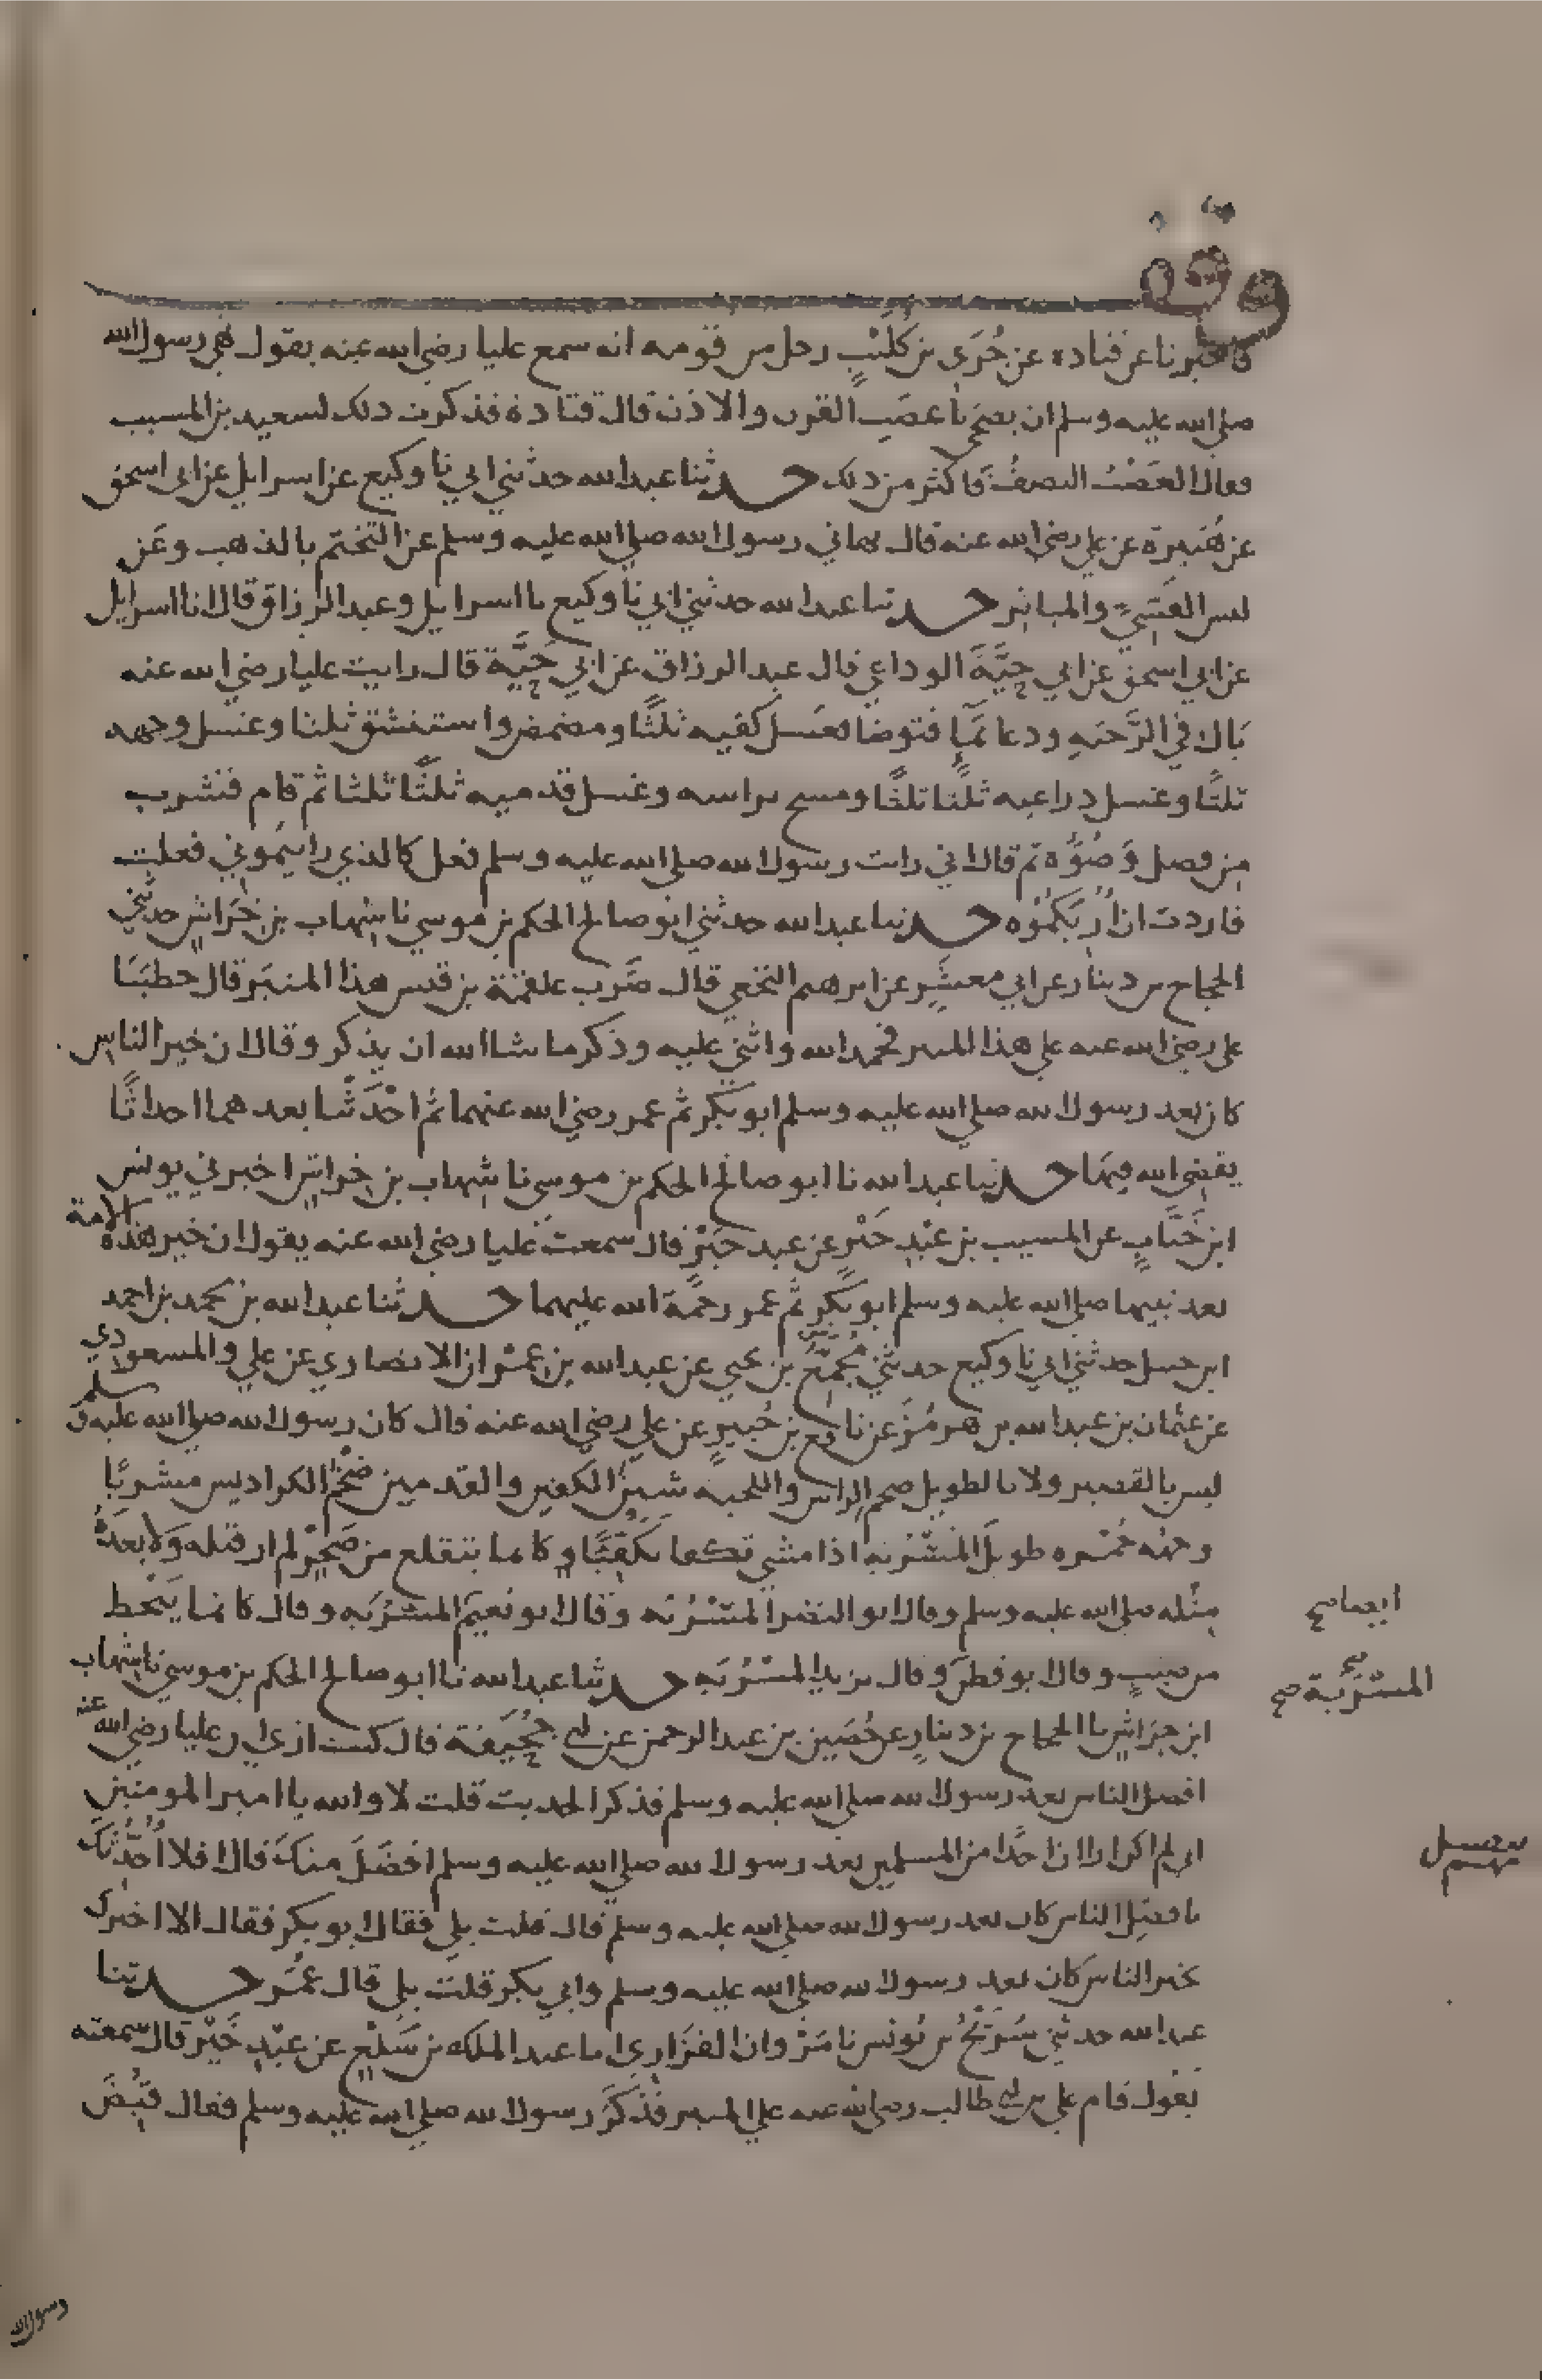 وقف
فاخبرنا عن قتادة عن جُرَي بن كُلَيْبٍ رجل من قومه انه سمع عليا رضي الله عنه يقول نهى رسول الله
صلى الله عليه وسلم ان يضحى باعضَبِ القرن والاذن قال قتادة فذكرت ذلك لسعيد بن المسيب
فقال العَضْبُ النصفُ فاكثر من ذلك حدثنا عبد الله حدثني ابي نا وكيع عن اسرايل عن ابي اسحق
عن هُبيرة عن علي رضي الله عنه قال نهاني رسول الله صلى الله عليه وسلم عن التختم بالذهب وعَن
لبس القَسِّيِّ والمياثر حدثنا عبد الله حدثني ابي نا وكيع نا اسرايل وعبد الرزاق قال انا اسرايل
عن ابي اسحق عن ابي حيَّةَ الوداعي قال عبد الرزاق عن ابي حَيَّة قال رايت عليا رضي الله عنه
بَال في الرَّحَبَةِ ودعا بمَاٍ فتوضا فغسل كفيه ثلثًا ومضمض واستنشق ثلثا وغسل وجهه
ثلثًا وغسل ذراعيه ثلثًا ثلثًا ومسح براسه وغسل قدميه ثلثًا ثلثا ثم قام فشرب
من فضل وَضُوْءه ثم قال اني رايت رسول الله صلى الله عليه وسلم فعل كالذي رايتموني فعلت
فاردت ان أُرِيَكُمُوه حدثنا عبد الله حدثني ابو صالح الحكم بن موسي نا شهاب بن خِرَاشٍ حدثني
الحجاج بن دينار عن ابي معشَرٍ عن ابرهيم النخعي قال ضَرب علقمة بن قيس هذا المنبَر قال خطبَنا
علي رضي الله عنه علي هذا المنبر فحمد الله واثنى عليه وذكر ما شا الله ان يذكر وقال ان خير الناس
كان بعد رسول الله صلى الله عليه وسلم ابو بكر ثم عمر رضي الله عنهما ثم احْدَثْنا بعدهما احداثًا
يقضي الله فيهَا حدثنا عبد الله نا ابو صالح الحكم بن موسي نا شهاب بن خراش اخبرني يونس
ابن خَبَّابٍ عن المسيب بن عَبْدِ خَيْرٍ عن عبد خَيْرٍ قال سمعت عليا رضي الله عنه يقول ان خير هذه الامة
بعد نبيها صلى الله عليه وسلم ابو بكرٍ ثم عمر رحمة الله عليهما حدثنا عبد الله بن محمد بن احمد
ابن حنبل حدثني ابي نا وكيع حدثني مُجَمِّعُ بن يحيي عن عبد الله بن عمْران الانصاري عن علي والمسعودي
عن عثمان بن عبد الله بن هرمُزَ عن نافع بن جُبيرٍ عن علي رضي الله عنه قال كان رسول الله صلى الله عليه وسلم
ليس بالقصير ولا بالطويل ضخم الراس واللحية شثنُ الكفين والقدمين ضخْمُ الكراديس مشربًا
وجهُه حُمْره طويلَ المسْرُبه اذا مشي تكفا تكفِّيًا وكانما يتقلع من صَخرٍ لم ار قبله وَلا بعدَهُ
مثله صلى الله عليه وسلم وقال ابو النضر المسْرُبَه وقال ابو نعيم المسرُبَه وقال كانما يَنْحط
من صببٍ وقال ابو قطنَ وقال يزيد المسْرُبَه حدثنا عبد الله نا ابو صالح الحكم بن موسي نا شهاب
ابن خِرَاشٍ نا الحجاج بن دينارٍ عن حُصَين بن عبد الرحمن عن ابي جُحَيْفة قال كنت ازي ان عليا رضي الله عنه
افضل الناس بعد رسول الله صلى الله عليه وسلم فذكر الحديث قلت لا والله يا امير المومنين
اني لم اكن ارا ان احَدًا من المسلمين بعد رسول الله صلى الله عليه وسلم افضَلَ منكَ قال افلا اُحَدِّثكَ
بافضِل الناس كان بعد رسول الله صلى الله عليه وسلم قال قلت بلي فقال ابو بكر فقال الا اخبرك
بخير الناس كان بعد رسول الله صلى الله عليه وسلم وابي بكر قلت بلي قال عمَر حدثنا
عبد الله حدثني سُرَيْجُ بن يُونس نا مَرْوان الفزَاري انا عبد الملك بن سَلْعٍ عن عبْدِ خَيْرٍ قال سمعته
يَقول قام علي بن ابي طالب رضي الله عنه علي المنبر فذكَرَ رسول الله صلى الله عليه وسلم فقال قُبِضَ
ايضا صح
المسْرُبة صح
رسول الله